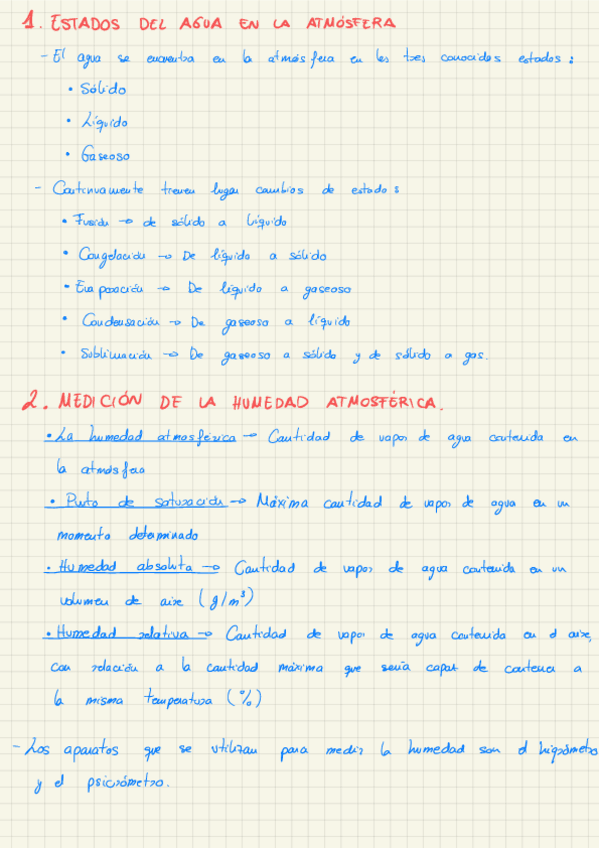 1. ESTADOS DEL AGUA EN LA ATMÓSFERA
- El agua se encuentra en la atmósfera en los tres conocidos estados:
• Sólido
• Líquido
• Gaseoso
- Continuamente tienen lugar cambios de estado:
• Fusión → de sólido a líquido
• Congelación → De líquido a sólido
• Evaporación → De líquido a gaseoso
• Condensación → De gaseoso a líquido
• Sublimación → De gaseoso a sólido y de sólido a gas.
2. MEDICIÓN DE LA HUMEDAD ATMOSFÉRICA.
• La humedad atmosférica → Cantidad de vapor de agua contenida en
la atmósfera
• Punto de saturación → Máxima cantidad de vapor de agua en un
momento determinado
• Humedad absoluta → Cantidad de vapor de agua contenida en un
volumen de aire (g/m³)
• Humedad relativa → Cantidad de vapor de agua contenida en el aire,
con relación a la cantidad máxima que sería capaz de contener a
la misma temperatura (%)
- Los aparatos que se utilizan para medir la humedad son el higrómetro
y el psicrómetro.